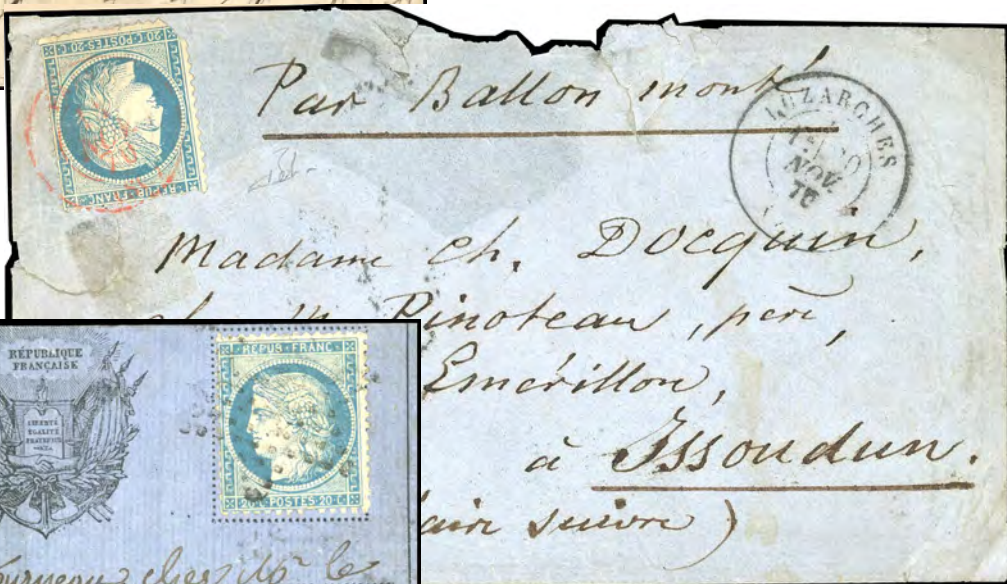 20 C · POSTES · 20 C
REPUB · FRANC
Par Ballon monté
LUZARCHES
NOV.
70
Madame Ch. Docquin,
Pinoteau, père,
Emérillon,
à Issoudun.
suivre )
RÉPUBLIQUE
FRANÇAISE
LIBERTÉ
ÉGALITÉ
REPUB · FRANC
20 C · POSTES · 20 C
chez Mr le